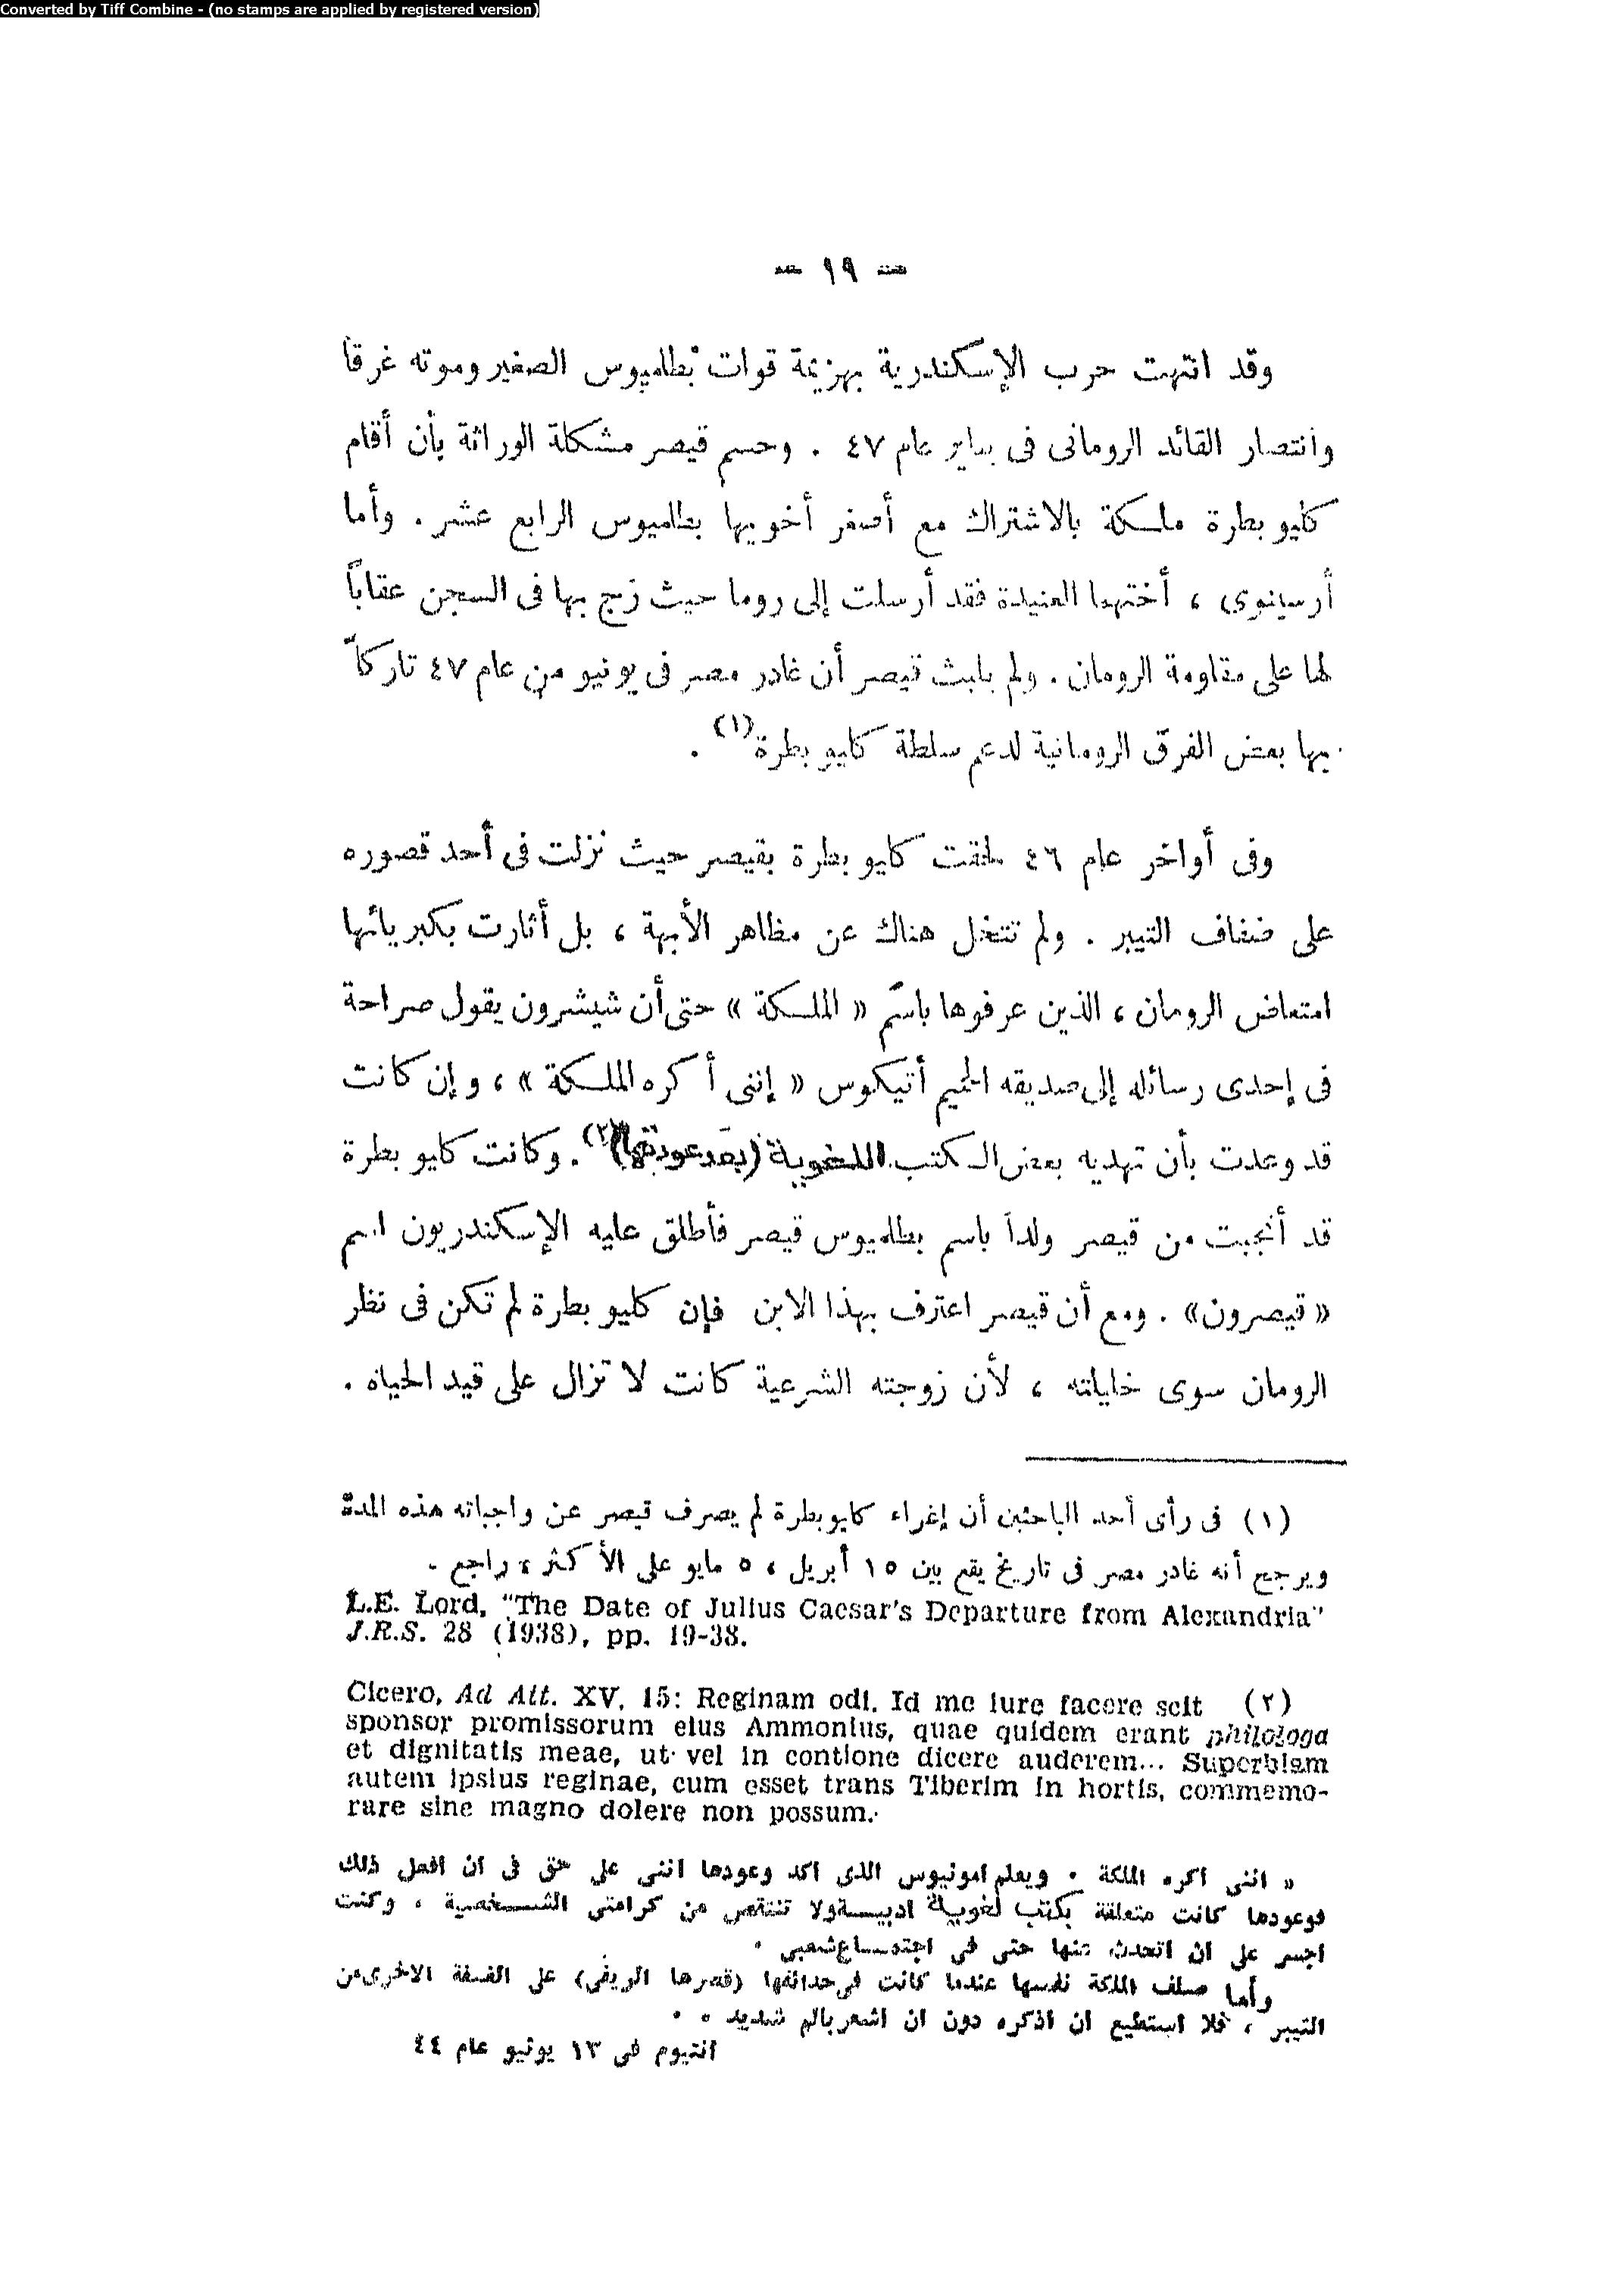 Converted by Tiff Combine - (no stamps are applied by registered version)
— ١٩ —
وقد انتهت حرب الإسكندرية بهزيمة قوات بطلميوس الصغير وموته غرقا
وانتصار القائد الرومانى فى يناير عام ٤٧ . وحسم قيصر مشكلة الوراثة بأن أقام
كليو بطرة ملكة بالاشتراك مع أصغر أخويها بطلميوس الرابع عشر . وأما
أرسينوى ، أختهما العنيدة فقد أرسلت إلى روما حيث زج بها فى السجن عقاباً
لها على مقاومة الرومان . ولم يلبث قيصر أن غادر مصر فى يونيو من عام ٤٧ تاركاً
بها بعض الفرق الرومانية لدعم سلطة كليو بطرة (١) .
وفى أواخر عام ٤٦ لحقت كليو بطرة بقيصر حيث نزلت فى أحد قصوره
على ضفاف التيبر . ولم تتخل هناك عن مظاهر الأبهة ، بل أثارت بكبريائها
امتعاض الرومان ، الذين عرفوها باسم « الملكة » حتى أن شيشرون يقول صراحة
فى إحدى رسائله إلى صديقه الحميم أتيكوس « إننى أكره الملكة » ، وإن كانت
قد وعدت بأن تهديه بعض الكتب اللغوية (بعد عودتها) (٢) . وكانت كليو بطرة
قد أنجبت من قيصر ولداً باسم بطلميوس قيصر فأطلق عليه الإسكندريون اسم
« قيصرون» . ومع أن قيصر اعترف بهذا الابن فإن كليو بطرة لم تكن فى نظر
الرومان سوى خليلته ، لأن زوجته الشرعية كانت لا تزال على قيد الحياه .
(١) فى رأى أحد الباحثين أن إغراء كليوبطرة لم يصرف قيصر عن واجباته هذه المدة
ويرجح أنه غادر مصر فى تاريخ يقع بين ١٥ أبريل ، ٥ مايو على الأكثر ، راجع -
L.E. Lord, "The Date of Julius Caesar's Departure from Alexandria"
J.R.S. 28 (1938), pp. 19-38.
(٢) Cicero, Ad Att. XV, 15: Reginam odi. Id me iure facere scit
sponsor promissorum eius Ammonius, quae quidem erant philologa
et dignitatis meae, ut vel in contione dicere auderem... Superbiam
autem ipsius reginae, cum esset trans Tiberim in hortis, commemo-
rare sine magno dolere non possum.
« اننى اكره الملكة . ويعلم امونيوس الذى اكد وعودها اننى على حق فى ان افعل ذلك
فوعودها كانت متعلقة بكتب لغوية ادبية ولا تنتقص من كرامتى الشخصية ، وكنت
اجسر على ان اتحدث عنها حتى فى اجتماع شعبى .
وأما صلف الملكة نفسها عندما كانت فى حدائقها (قصرها الريفى) على الضفة الاخرى من
التيبر ، فلا استطيع ان اذكره دون ان اشعر بالم شديد » .
انتيوم فى ١٣ يونيو عام ٤٤